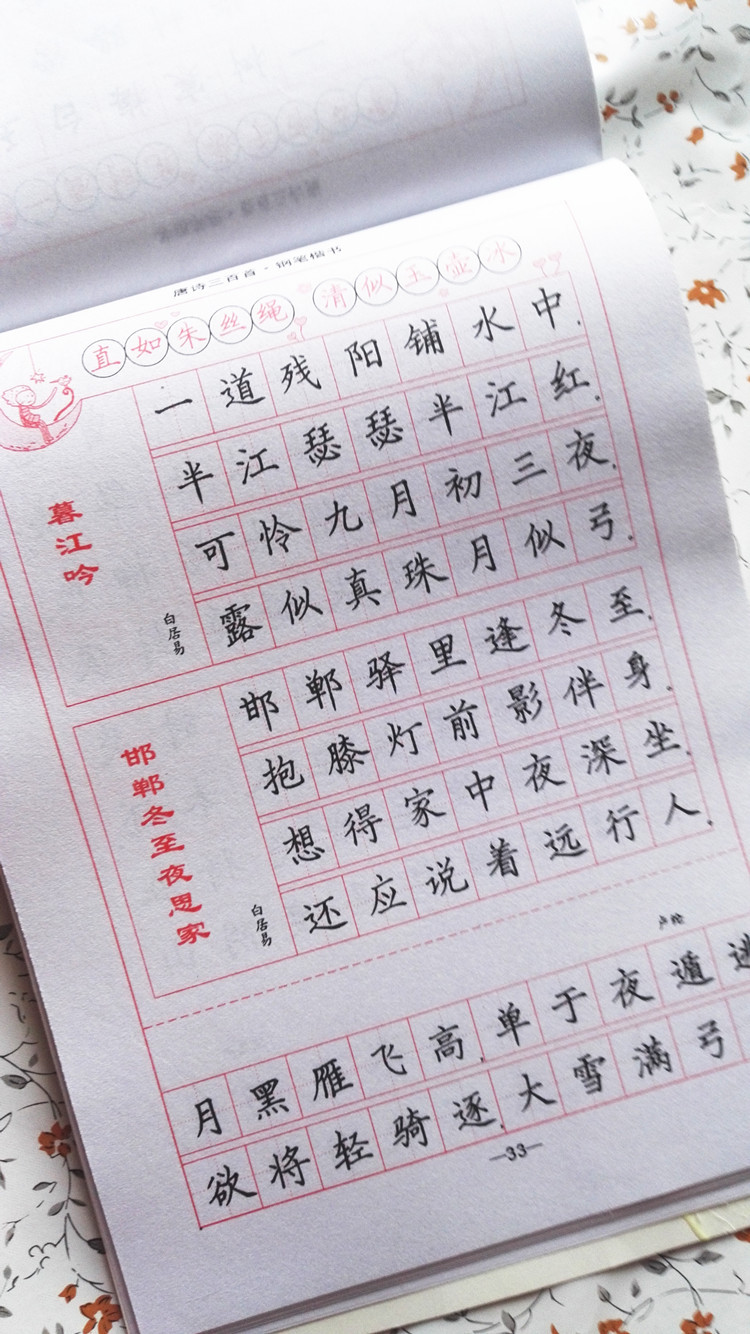 唐诗三百首·钢笔楷书
直如朱丝绳 清似玉壶冰
暮江吟
白居易
一道残阳铺水中.
半江瑟瑟半江红.
可怜九月初三夜.
露似真珠月似弓.
邯郸冬至夜思家
白居易
邯郸驿里逢冬至.
抱膝灯前影伴身.
想得家中夜深坐.
还应说着远行人.
卢纶
月黑雁飞高.单于夜遁逃
欲将轻骑逐.大雪满弓
—33—